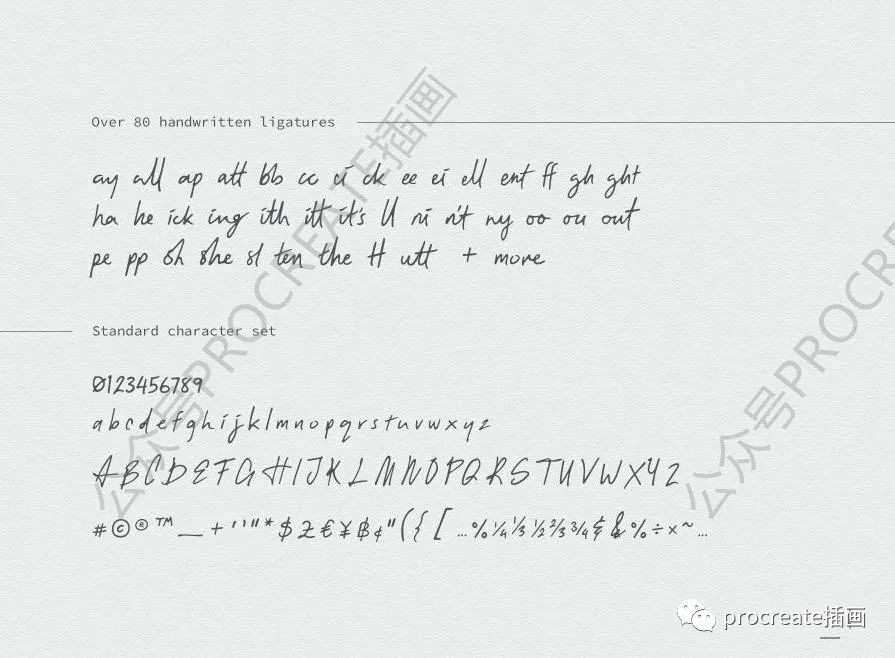 Over 80 handwritten ligatures
ay all ap att bb cc ci ck ee ei ell ent ff gh ght
ha he ick ing ith itt it's ll ri n't ny oo ou out
pe pp sh she sl ten the tt utt + more
Standard character set
0123456789
abcdefghijklmnopqrstuvwxyz
ABCDEFGHIJKLMNOPQRSTUVWXYZ
#©®™_+''"*$£€¥฿¢"({[…%¼⅓½⅔¾$&%÷×~…
公众号PROCREATE插画
公众号PROCREATE
procreate插画